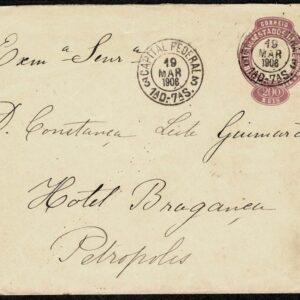 Exmª Snrª
D. Constança Leite Guimarã
Hotel Bragança
Petropolis
CAPITAL FEDERAL
19
MAR
1906
3 1ªD-7ªS. 3
CORREIO
ESTADOS
19
MAR
1906
1ªD-7ªS.
200
REIS